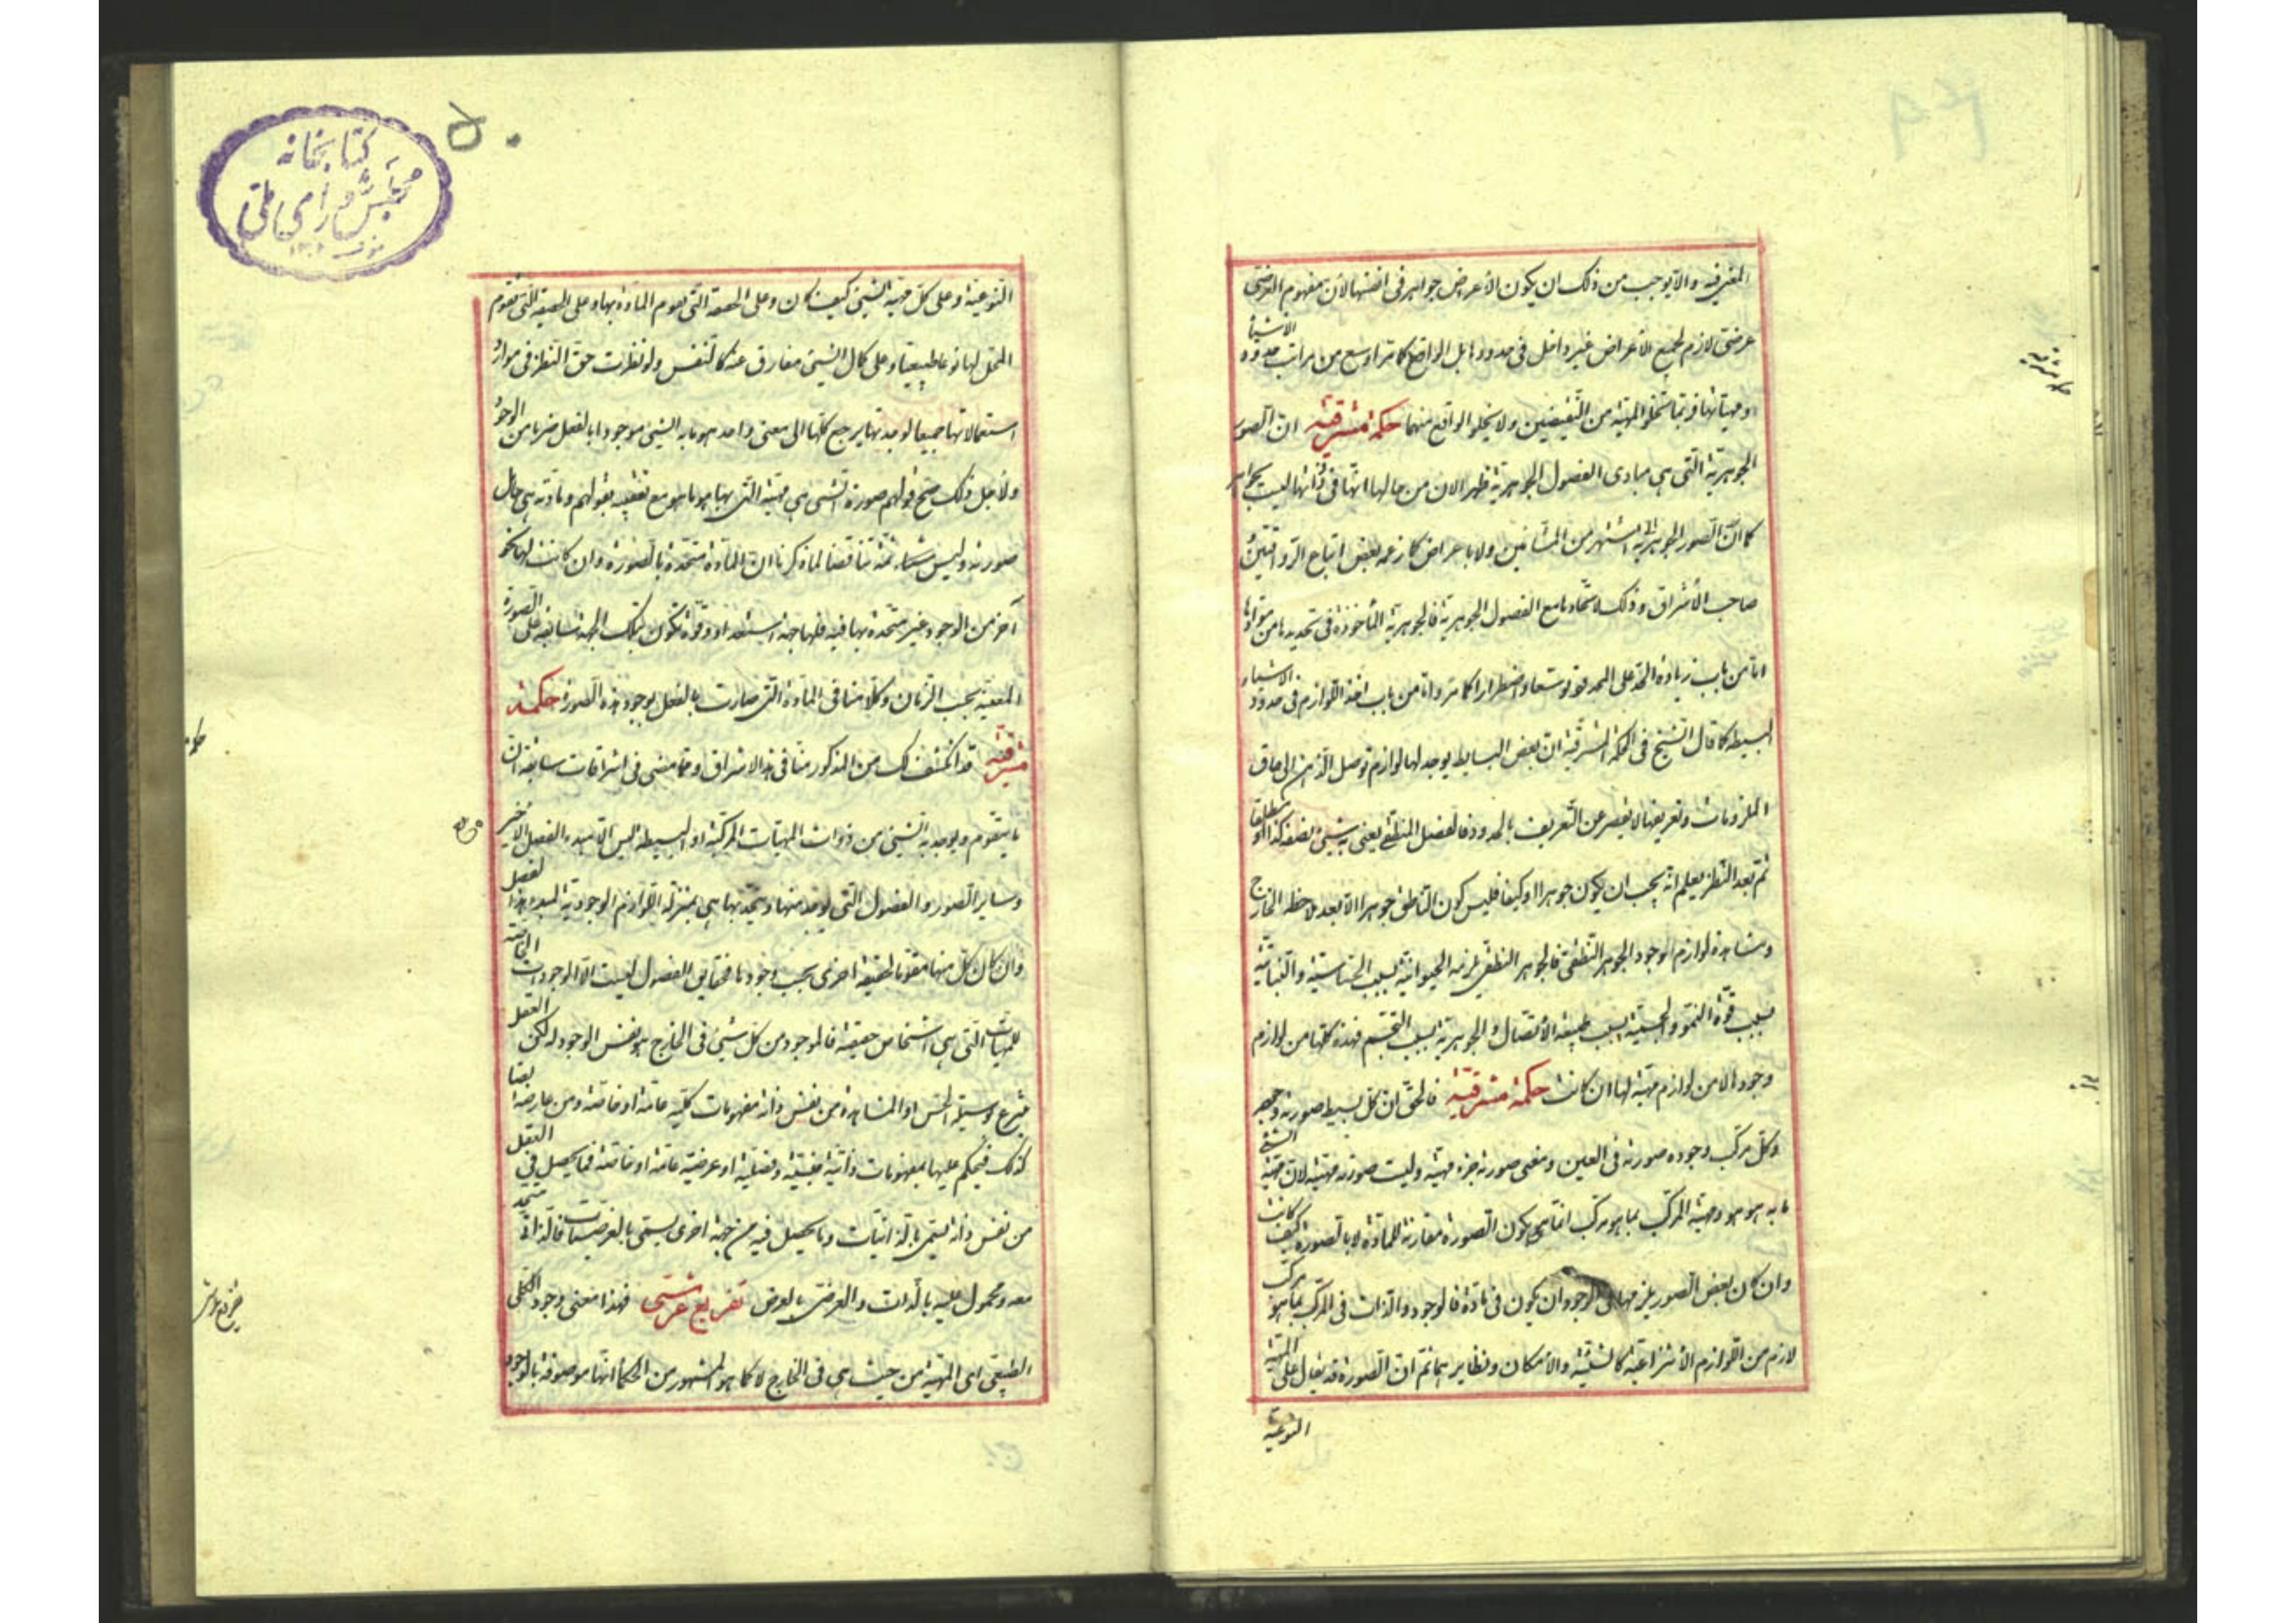 المغرفيه والا يوجب من ذلك ان يكون الأعراض جواهر فى انفسها لأن مفهوم العرضى
عرضى لازم لجميع الأعراض غير داخل فى حدودها بل الواقع كما مر اوسع من مراتب حدود الاشياء
ومهياتها فربما تخلو المهية من النقيضين ولا يخلو الواقع منهما حكمة مشرقية ان الصور
الجوهرية التى هى مبادى الفصول الجوهرية ظهر الان من حالها انها فى ذاتها ليست بجواهر
كما ان الصور الجوهرية اشتهر من المشائين ولا باعراض كما زعمه بعض اتباع الرواقيين
صاحب الأشراق وذلك لاتحادها مع الفصول الجوهرية فالجوهرية المأخوذة فى تحديدها من موادها
اما من باب زيادة الحد على المحدود توسعا واضطرارا كما مر واما من باب اخذ اللوازم فى حدود الاشياء
البسيطة كما قال الشيخ فى الحكمة المشرقية ان بعض البسايط يوجد لها لوازم توصل الذهن الى حاق
الملزومات وتعريفها لا يقصر عن التعريف بالحدود فالفصل المنطقى يعنى به شيئ بصفة كذا مطلقا
ثم بعد النظر يعلم انه يجب ان يكون جوهرا او كيفا فليس كون الناطق جوهرا الا بعد ملاحظة الخارج
ومشاهدة لوازم الوجود الجوهر النطقى فالجوهر النطقى يلزمه الحيوانية بسبب الحساسية والنباتية
بسبب قوة النمو والجسمية بسبب طبيعة الأتصال والجوهرية بسبب التجسم فهذه كلها من لوازم
وجود الا من لوازم مهية لها ان كانت حكمة مشرقية فالحق ان كل بسيط صورته وجهه
وكل مركب وجوده صورته فى العين ومعنى صورته جزء مهيته وليست صورته مهيته لان مهية الشئ
ما به هو هو ومهية المركب بما هو مركب انما هى بكون الصورة مقارنة للمادة لا بالصورة كيف كانت
وان كان بعض الصور يلزمها فى الوجود ان يكون فى مادة فالوجود والذات فى المركب بما هو مركب
لازم من اللوازم الأنتزاعية كالشيئية والأمكان ونظايرهما ثم ان الصورة قد يقال على المهية
النوعية
كتابخانه
مجلس شوراى ملى
٥٠
النوعية وعلى كل مهية الشيئ كيف كان وعلى الحقيقة التى يقوم المادة بها وعلى الحقيقة التى تقوم
المحل لها نوعا طبيعيا وعلى كمال الشيئ مفارق عنه كالنفس ولو نظرت حق النظر فى موارد
استعمالاتها جميعا لوجدتها يرجع كلها الى معنى واحد هو ما به الشيئ موجودا بالفعل ضربا من الوجود
ولأجل ذلك صح قولهم صورة الشيئ هى مهيته التى بها هو ما هو مع تعقيبه بقولهم ومادته هى حامل
صورته وليس مناقضا لما ذكرنا ان المادة متحدة بالصورة وان كانت لها نحو
آخر من الوجود غير متحدة بها فيه فلها جهة استعداد وقوة تكون بتلك الجهة سابقة على الصورة
المعية بحسب الزمان وكلامنا فى المادة التى صارت بالفعل بوجود هذه الصورة حكمة
مشرقية قد انكشف لك من المذكور منا فى هذا الاشراق ومما مضى فى اشراقات سابقة ان
ما يتقوم ويوجد به الشيئ من ذوات المهيات المركبة او البسيطة ليس الا مبدء الفصل الاخير
وساير الصور والفصول التى يوجد منها ويتحد بها هى بمنزلة اللوازم الوجودية لمبدء هذا الفصل
وان كان كل منها مقوما لحقيقة اخرى بحسب وجودها فحقايق الفصول ليست الا الوجودات الخاصة
للمهيات التى هى اشخاص حقيقة فالموجود من كل شيئ فى الخارج هو نفس الوجود له لكن العقل
ينتزع بوسيلة الحس او المشاهدة من نفس ذاته مفهومات كلية عامة او خاصة ومن عارضه ايضا
كذلك فيحكم عليها بمفهومات ذاتية جنسية وفصلية او عرضية عامة او خاصة فما يحصل فى العقل
من نفس ذاته يسمى بالذاتيات وما يحصل فيه من جهة اخرى يسمى بالعرضيات فالذاتى متحد
معه ومحمول عليه بالذات والعرضى بالعرض تفريع عرشى فهذا معنى وجود الكلى
الطبيعى اى المهية من حيث هى فى الخارج لا كما هو المشهور من الحكماء انها موصوفة بالوجود